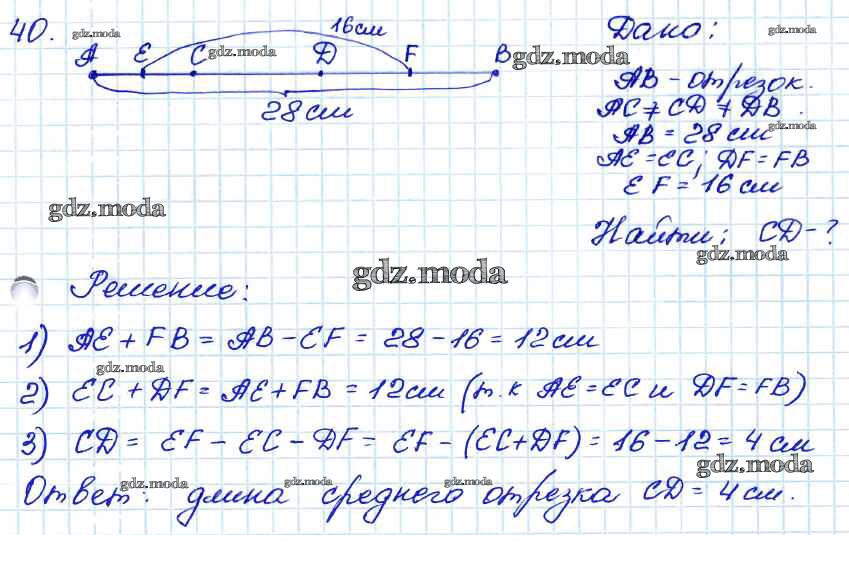 40. gdz.moda 16см Дано: gdz.moda
A E C gdz.moda D F B gdz.moda
28 см
АВ - отрезок.
AC ≠ CD ≠ DB. gdz.moda
AB = 28 см
AE = EC; DF = FB
EF = 16 см
gdz.moda
Найти: CD - ?
gdz.moda
gdz.moda
Решение:
1) AE + FB = AB - EF = 28 - 16 = 12 см
gdz.moda
2) EC + DF = AE + FB = 12 см (т.к AE = EC и DF = FB)
3) CD = EF - EC - DF = EF - (EC + DF) = 16 - 12 = 4 см
gdz.moda
gdz.moda gdz.moda gdz.moda
Ответ: длина среднего отрезка CD = 4 см.